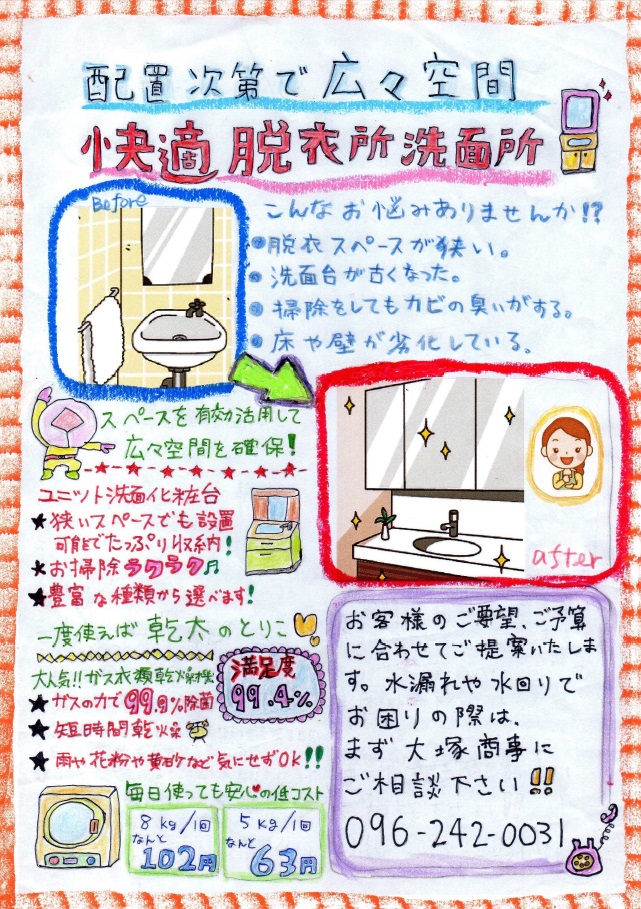 配置次第で広々空間
快適脱衣所洗面所
Before
こんなお悩みありませんか!?
●脱衣スペースが狭い。
●洗面台が古くなった。
●掃除をしてもカビの臭いがする。
●床や壁が劣化している。
スペースを有効活用して
広々空間を確保!
ユニット洗面化粧台
★狭いスペースでも設置
可能でたっぷり収納!
★お掃除ラクラク♬
★豊富な種類から選べます!
after
一度使えば乾太のとりこ
大人気!!ガス衣類乾燥機
満足度
99.4%
★ガスの力で99.9%除菌
★短時間乾燥
★雨や花粉や黄砂など気にせずOK!!
毎日使っても安心の低コスト
8kg/1回
なんと
102円
5kg/1回
なんと
63円
お客様のご要望、ご予算
に合わせてご提案いたしま
す。水漏れや水回りで
お困りの際は、
まず大塚商事に
ご相談下さい!!
096-242-0031